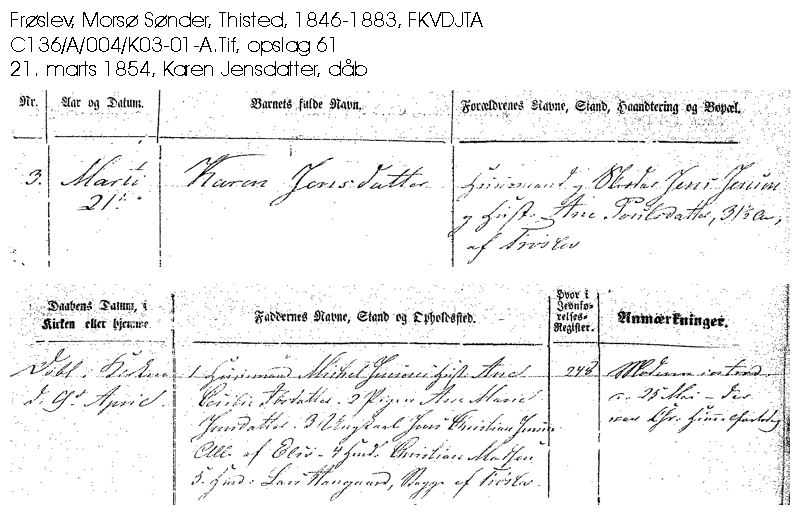 Frøslev, Morsø Sønder, Thisted, 1846-1883, FKVDJTA
C136/A/004/K03-01-A.Tif, opslag 61
21. marts 1854, Karen Jensdatter, dåb
Nr.
Aar og Datum.
Barnets fulde Navn.
Forældrenes Navne, Stand, Haandtering og Bopæl.
3.
Marti
21
Karen Jensdatter
Huusmand og Jens Jensen
og Hust. Ane Poulsdatter, 31½ Aar,
af Frøslev
Daabens Datum, i
Kirken eller hjemme.
Faddernes Navne, Stand og Opholdssted.
Hvor i
Jevnfø-
relses-
Register.
Anmærkninger.
Døbt i Kirken
d. 9d April.
1 Huusmand Michel Jensens Hust. Ane
2 Pigen Ane Marie
Jensdatter. 3 Ungkarl Jens Christian Jensen
Alle af Elsø - 4 Huusmd. Christian Madsen
5. Huusmd. Lars Haugaard, Begge af Frøslev.
248
Moderen introd.
25 Mai - der
var Chr. Himmelfartsdag